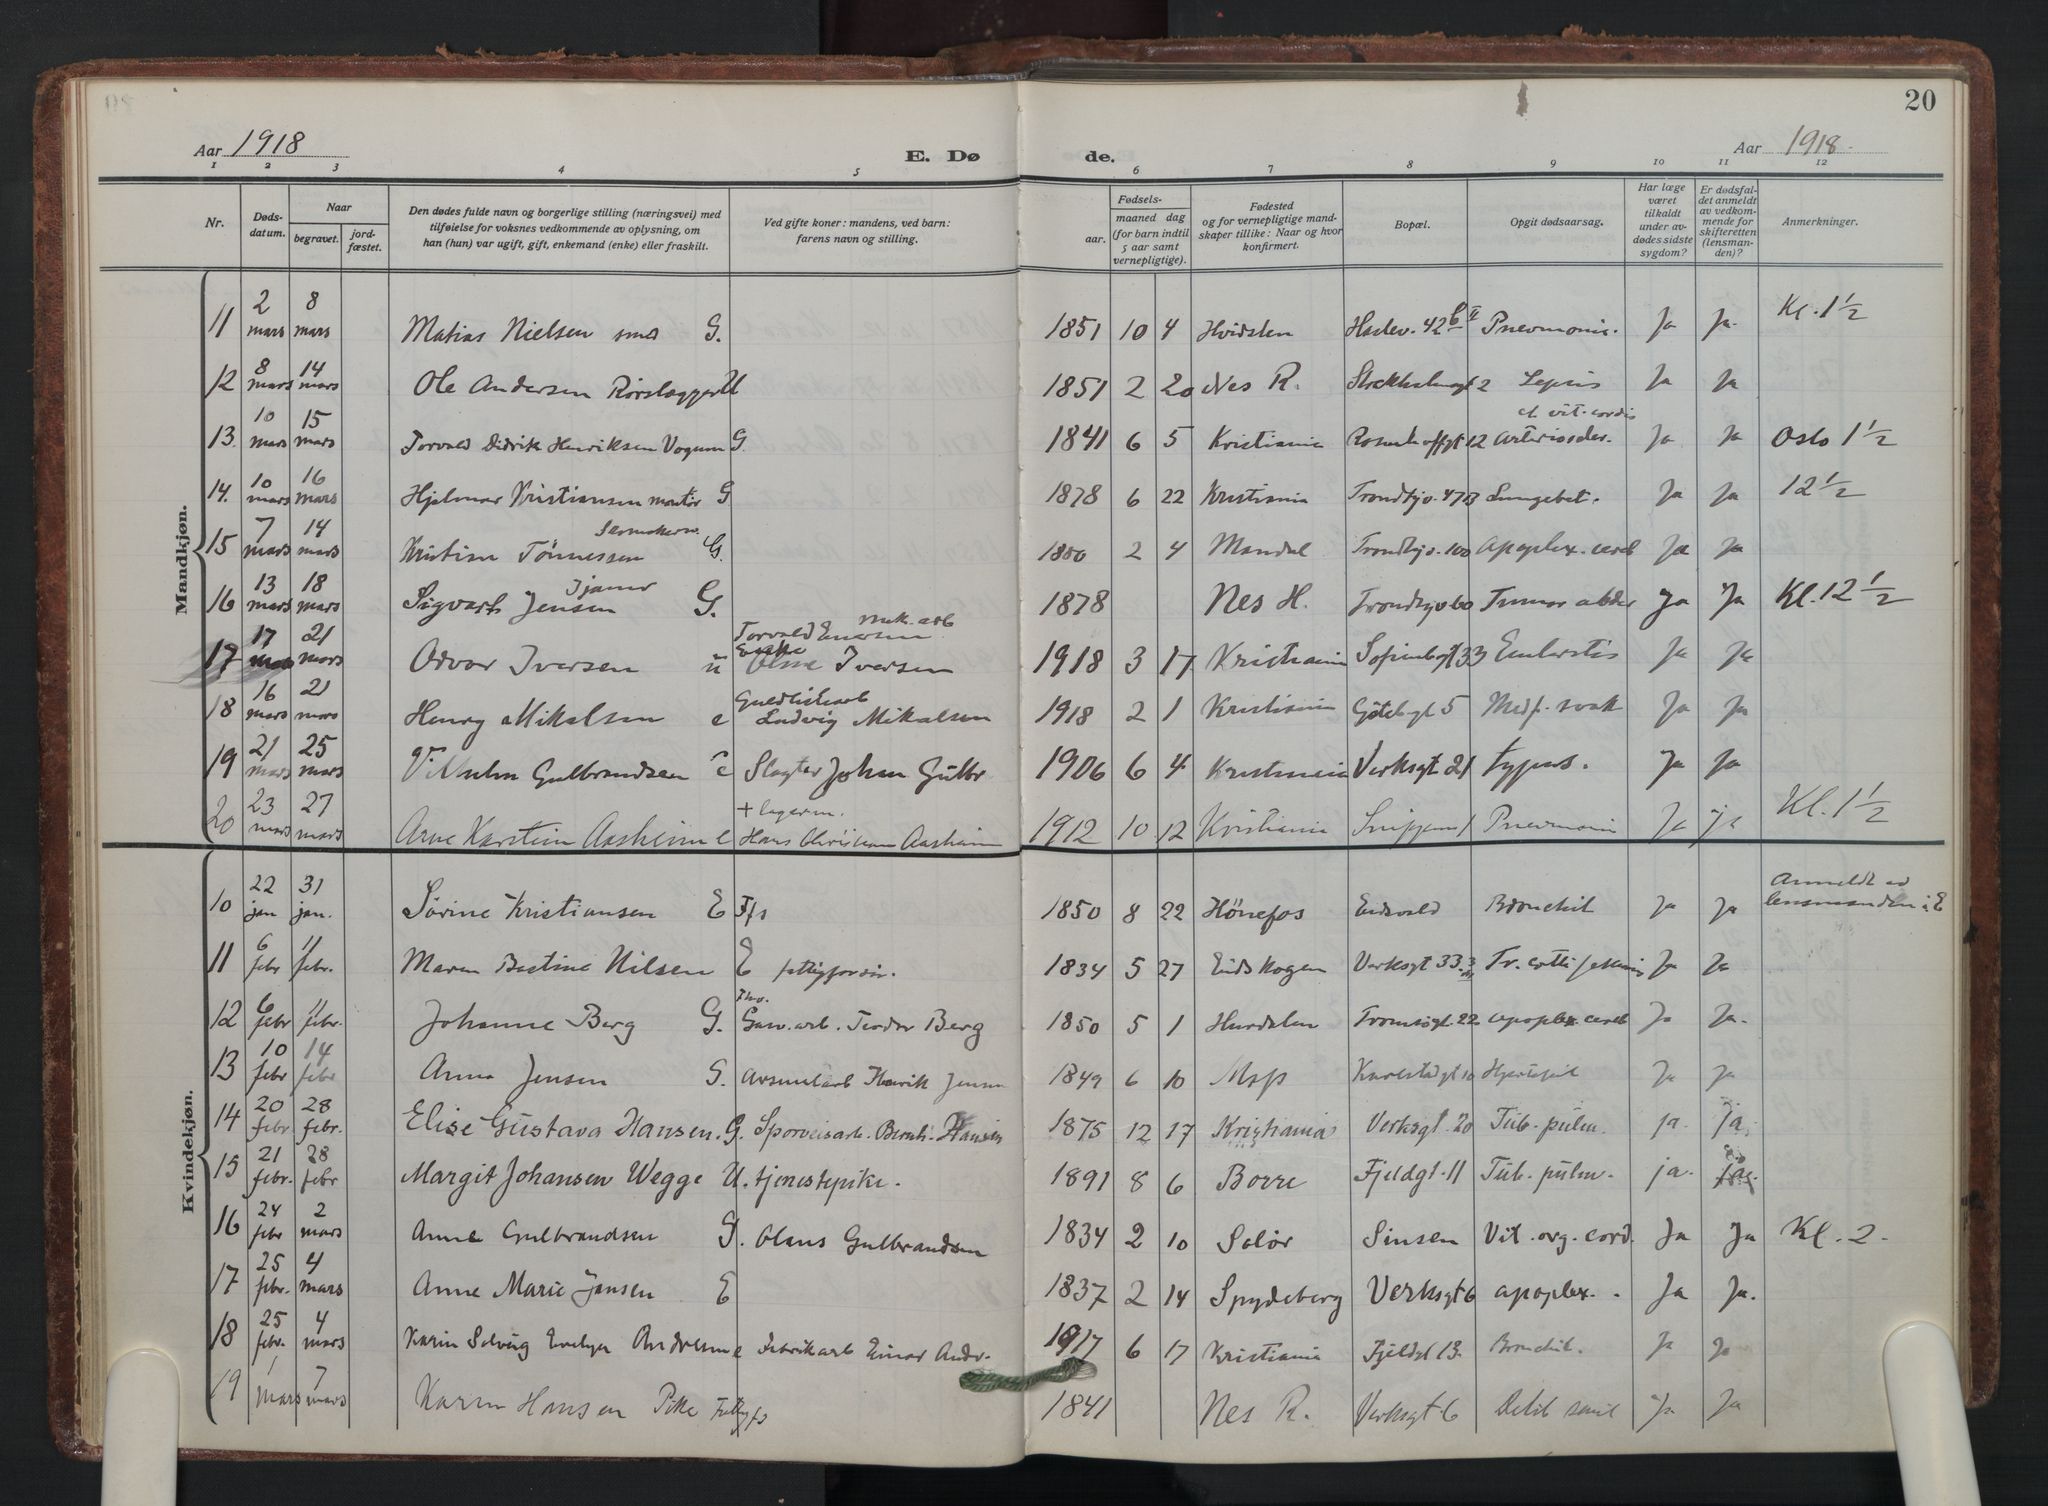 20
Aar 1918
E. Dø
de.
Aar 1918.
1 2 3 4 5 6 7 8 9 10 11 12
Nr.
Døds-
datum.
Naar
begravet.
jord-
fæstet.
Den dødes fulde navn og borgerlige stilling (næringsvei) med
tilføielse for voksnes vedkommende av oplysning, om
han (hun) var ugift, gift, enkemand (enke) eller fraskilt.
Ved gifte koner: mandens, ved barn:
farens navn og stilling.
Fødsels-
aar.
maaned dag
(for barn indtil
5 aar samt
vernepligtige).
Fødested
og for vernepligtige mand-
skaper tillike: Naar og hvor
konfirmert.
Bopæl.
Opgit dødsaarsag.
Har læge
været
tilkaldt
under av-
dødes sidste
sygdom?
Er dødsfal-
det anmeldt
av vedkom-
mende for
skifteretten
(lensman-
den)?
Anmerkninger.
Mandkjøn.
11 2 mars 8 mars Matias Nielsen smed G. 1851 10 4 Hvidsten Haslev. 42 b II Pneumonie. Ja Ja. Kl. 1½
12 8 mars 14 mars Ole Andersen Rørlægger U 1851 2 20 Nes R. Stockholmsgt 2 Sepsis Ja Ja
et vit. cordis
13. 10 mars 15 mars Torvald Didrik Henriksen Vognm G. 1841 6 5 Kristiania Rosenhoffgt 12 Arterioscler. Ja Ja Oslo 1½
14. 10 mars 16 mars Hjalmar Kristiansen montør G 1878 6 22 Kristiania Trondhjv. 47B Lungebet. Ja Ja 12½
15 7 mars 14 mars Kristian Tønnessen G. 1850 2 4 Mandal Trondhjv. 100 Apoplex. cereb Ja Ja
16 13 mars 18 mars Sigvart Jensen G. 1878 Nes H. Trondhjv 60 Tumor abdom Ja Ja Kl. 12½
Torvald Emersen mek. arb
17 17 mars 21 mars Odvar Iversen u Iversen 1918 3 17 Kristiania Sofienbgt 33 Ja Ja
Guldlistearb
18 16 mars 21 mars Henry Mikalsen e Ludvig Mikalsen 1918 2 1 Kristiania Götebgt 5 Medf. svak Ja Ja
19 21 mars 25 mars Vilhelm Gulbrandsen e Slagter Johan Gulbr 1906 6 4 Kristiania Verksgt 21 Typus. Ja Ja
+ lagerm.
20 23 mars 27 mars Arne Karstein Aasheim e Hans Christian Aasheim 1912 10 12 Kristiania 1 Pneumoni Ja Ja Kl. 1½
Kvindekjøn.
10 22 jan 31 jan. Sørine Kristiansen E F/s 1850 8 22 Hönefos Eidsvold Bronchit Ja Ja Anmeldt av lensmanden i E
11 6 febr 11 febr. Maren Bestine Nilsen E fattigforsør. 1834 5 27 Eidskogen Verksgt 33 Ja Ja
12 6 febr 11 febr. Johanne Berg G. Gasv. arb. Teodor Berg 1850 5 1 Hurdalen Tromsøgt. 22 apoplex cereb Ja Ja.
13 10 febr 14 febr Anna Jensen G. Arsenalarb Henrik Jensen 1849 6 10 Moss Karlstadgt 10 Hjertefeil Ja Ja
14 20 febr 28 febr. Elise Gustava Hansen. G. Sporveisarb. Bernh. Hansen 1875 12 17 Kristiania Verksgt. 20 Tub. pulm. ja. ja.
15 21 febr. 28 febr Margit Johansen Wegge U. tjenestepike. 1891 8 6 Borre Fjeldgt. 11 Tub. pulm. ja. ja.
16 24 febr 2 mars Anne Gulbrandsen G. Olaus Gulbrandsen 1834 2 10 Solør Sinsen Vit. org. cord. Ja Ja Kl. 2.
17 25 febr. 4 mars Anne Marie Jensen E 1837 2 14 Spydeberg Verksgt 6 apoplex. Ja Ja.
18 25 febr. 4 mars Karin Solveig Evelyn Andresen e Fabrikarb Einar Andr. 1917 6 17 Kristiania Fjeldgt 13. Bronchit. Ja Ja
19 1 mars 7 mars Karen Hansen Pike Fattigfs 1841 Nes R. Verksgt 6 Debil senil Ja Ja